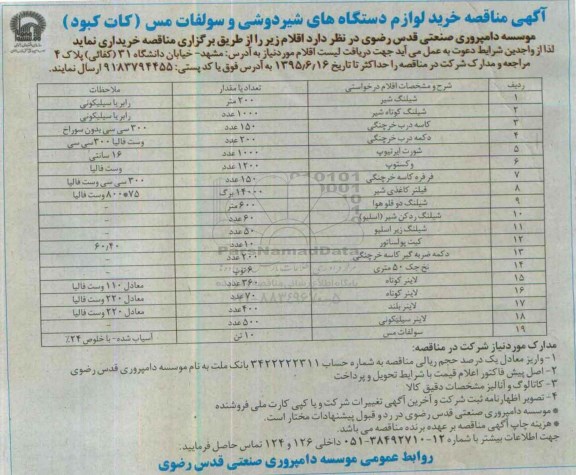 آگهی مناقصه خرید لوازم دستگاه های شیردوشی و سولفات مس (کات کبود)
موسسه دامپروری صنعتی قدس رضوی در نظر دارد اقلام زیر را از طریق برگزاری مناقصه خریداری نماید
لذا از واجدین شرایط دعوت به عمل می آید جهت دریافت لیست اقلام مورد نیاز به آدرس: مشهد- خیابان دانشگاه ۳۱ (کفائی) پلاک ۴
مراجعه و مدارک شرکت در مناقصه را حداکثر تا تاریخ ۱۳۹۵/۶/۱۶ به آدرس فوق یا کد پستی: ۹۱۸۳۷۹۴۴۵۵ ارسال نمایند.
ردیف شرح و مشخصات اقلام درخواستی تعداد یا مقدار ملاحظات
۱ شیلنگ شیر ۲۰۰ متر رابر یا سیلیکونی
۲ شیلنگ کوتاه شیر ۱۰۰۰ عدد رابر یا سیلیکونی
۳ کاسه درب خرچنگی ۱۵۰ عدد ۳۰۰ سی سی بدون سوراخ
۴ دکمه درب خرچنگی ۲۰۰ عدد وست فالیا ۳۰۰ سی سی
۵ شورت ایرتیوپ ۱۰۰۰ عدد ۱۶ سانتی
۶ وکستوپ ۱۲۰۰ عدد وست فالیا
۷ فرفره کاسه خرچنگی ۱۵۰ عدد ۳۰۰ سی سی وست فالیا
۸ فیلتر کاغذی شیر ۱۴۰۰۰ برگ ۷۵*۸۰۰ وست فالیا
۹ شیلنگ دوقلو هوا ۶۰۰ متر -
۱۰ شیلنگ ردکن شیر (اسلیو) ۶۰ عدد -
۱۱ شیلنگ زیر اسلیو ۵۰ عدد -
۱۲ کیت پولساتور ۱۰ عدد ۶۰٫۴۰
۱۳ دکمه ضربه گیر کاسه خرچنگی ۲۰۰ عدد -
۱۴ نخ جک ۵۰ متری ۶ توپ -
۱۵ لاینر کوتاه ۳۶۰ عدد معادل ۱۱۰ وست فالیا
۱۶ لاینر کوتاه ۷۰ عدد معادل ۲۲۰ وست فالیا
۱۷ لاینر بلند ۴۰۰ عدد معادل ۲۲۰ وست فالیا
۱۸ لاینر سیلیکونی ۵۰۰ عدد -
۱۹ سولفات مس ۱۰ تن آسیاب شده - با خلوص ۲۴٪
ParsNamadData
مدارک مورد نیاز شرکت در مناقصه:
۱- واریز معادل یک درصد حجم ریالی مناقصه به شماره حساب ۳۴۲۲۲۲۲۳۱۱ بانک ملت به نام موسسه دامپروری قدس رضوی
۲- اصل پیش فاکتور اعلام قیمت با شرایط تحویل و پرداخت
۳- کاتالوگ و آنالیز مشخصات دقیق کالا
۴- تصویر اظهارنامه ثبت شرکت و آخرین آگهی تغییرات شرکت و یا کپی کارت ملی فروشنده
* موسسه دامپروری صنعتی قدس رضوی در رد و قبول پیشنهادات مختار است.
* هزینه چاپ آگهی مناقصه بر عهده برنده مناقصه می باشد.
جهت اطلاعات بیشتر با شماره ۱۲-۳۸۴۹۲۷۱۰-۰۵۱ داخلی ۱۲۶ و ۱۲۴ تماس حاصل فرمایید.
روابط عمومی موسسه دامپروری صنعتی قدس رضوی